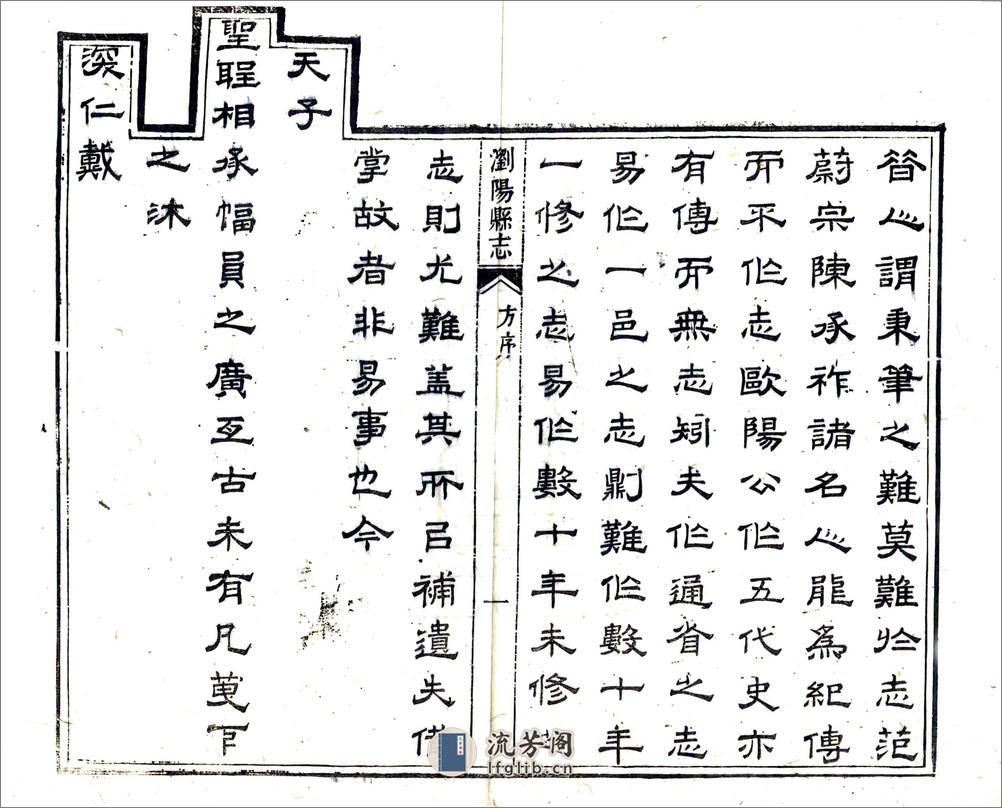 昔人謂秉筆之難莫難於志范
蔚宗陳承祚諸名人能為紀傳
而不作志歐陽公作五代史亦
有傳而無志矧夫作通省之志
易作一邑之志劇難作數十年
一修之志易作數十年未修
瀏陽縣志
方序
一
志則尤難蓋其所㠯補遺失備
掌故者非易事也今
天子
聖聖相承幅員之廣亙古未有凡
之沐
深仁戴
流芳阁
lfglib.cn